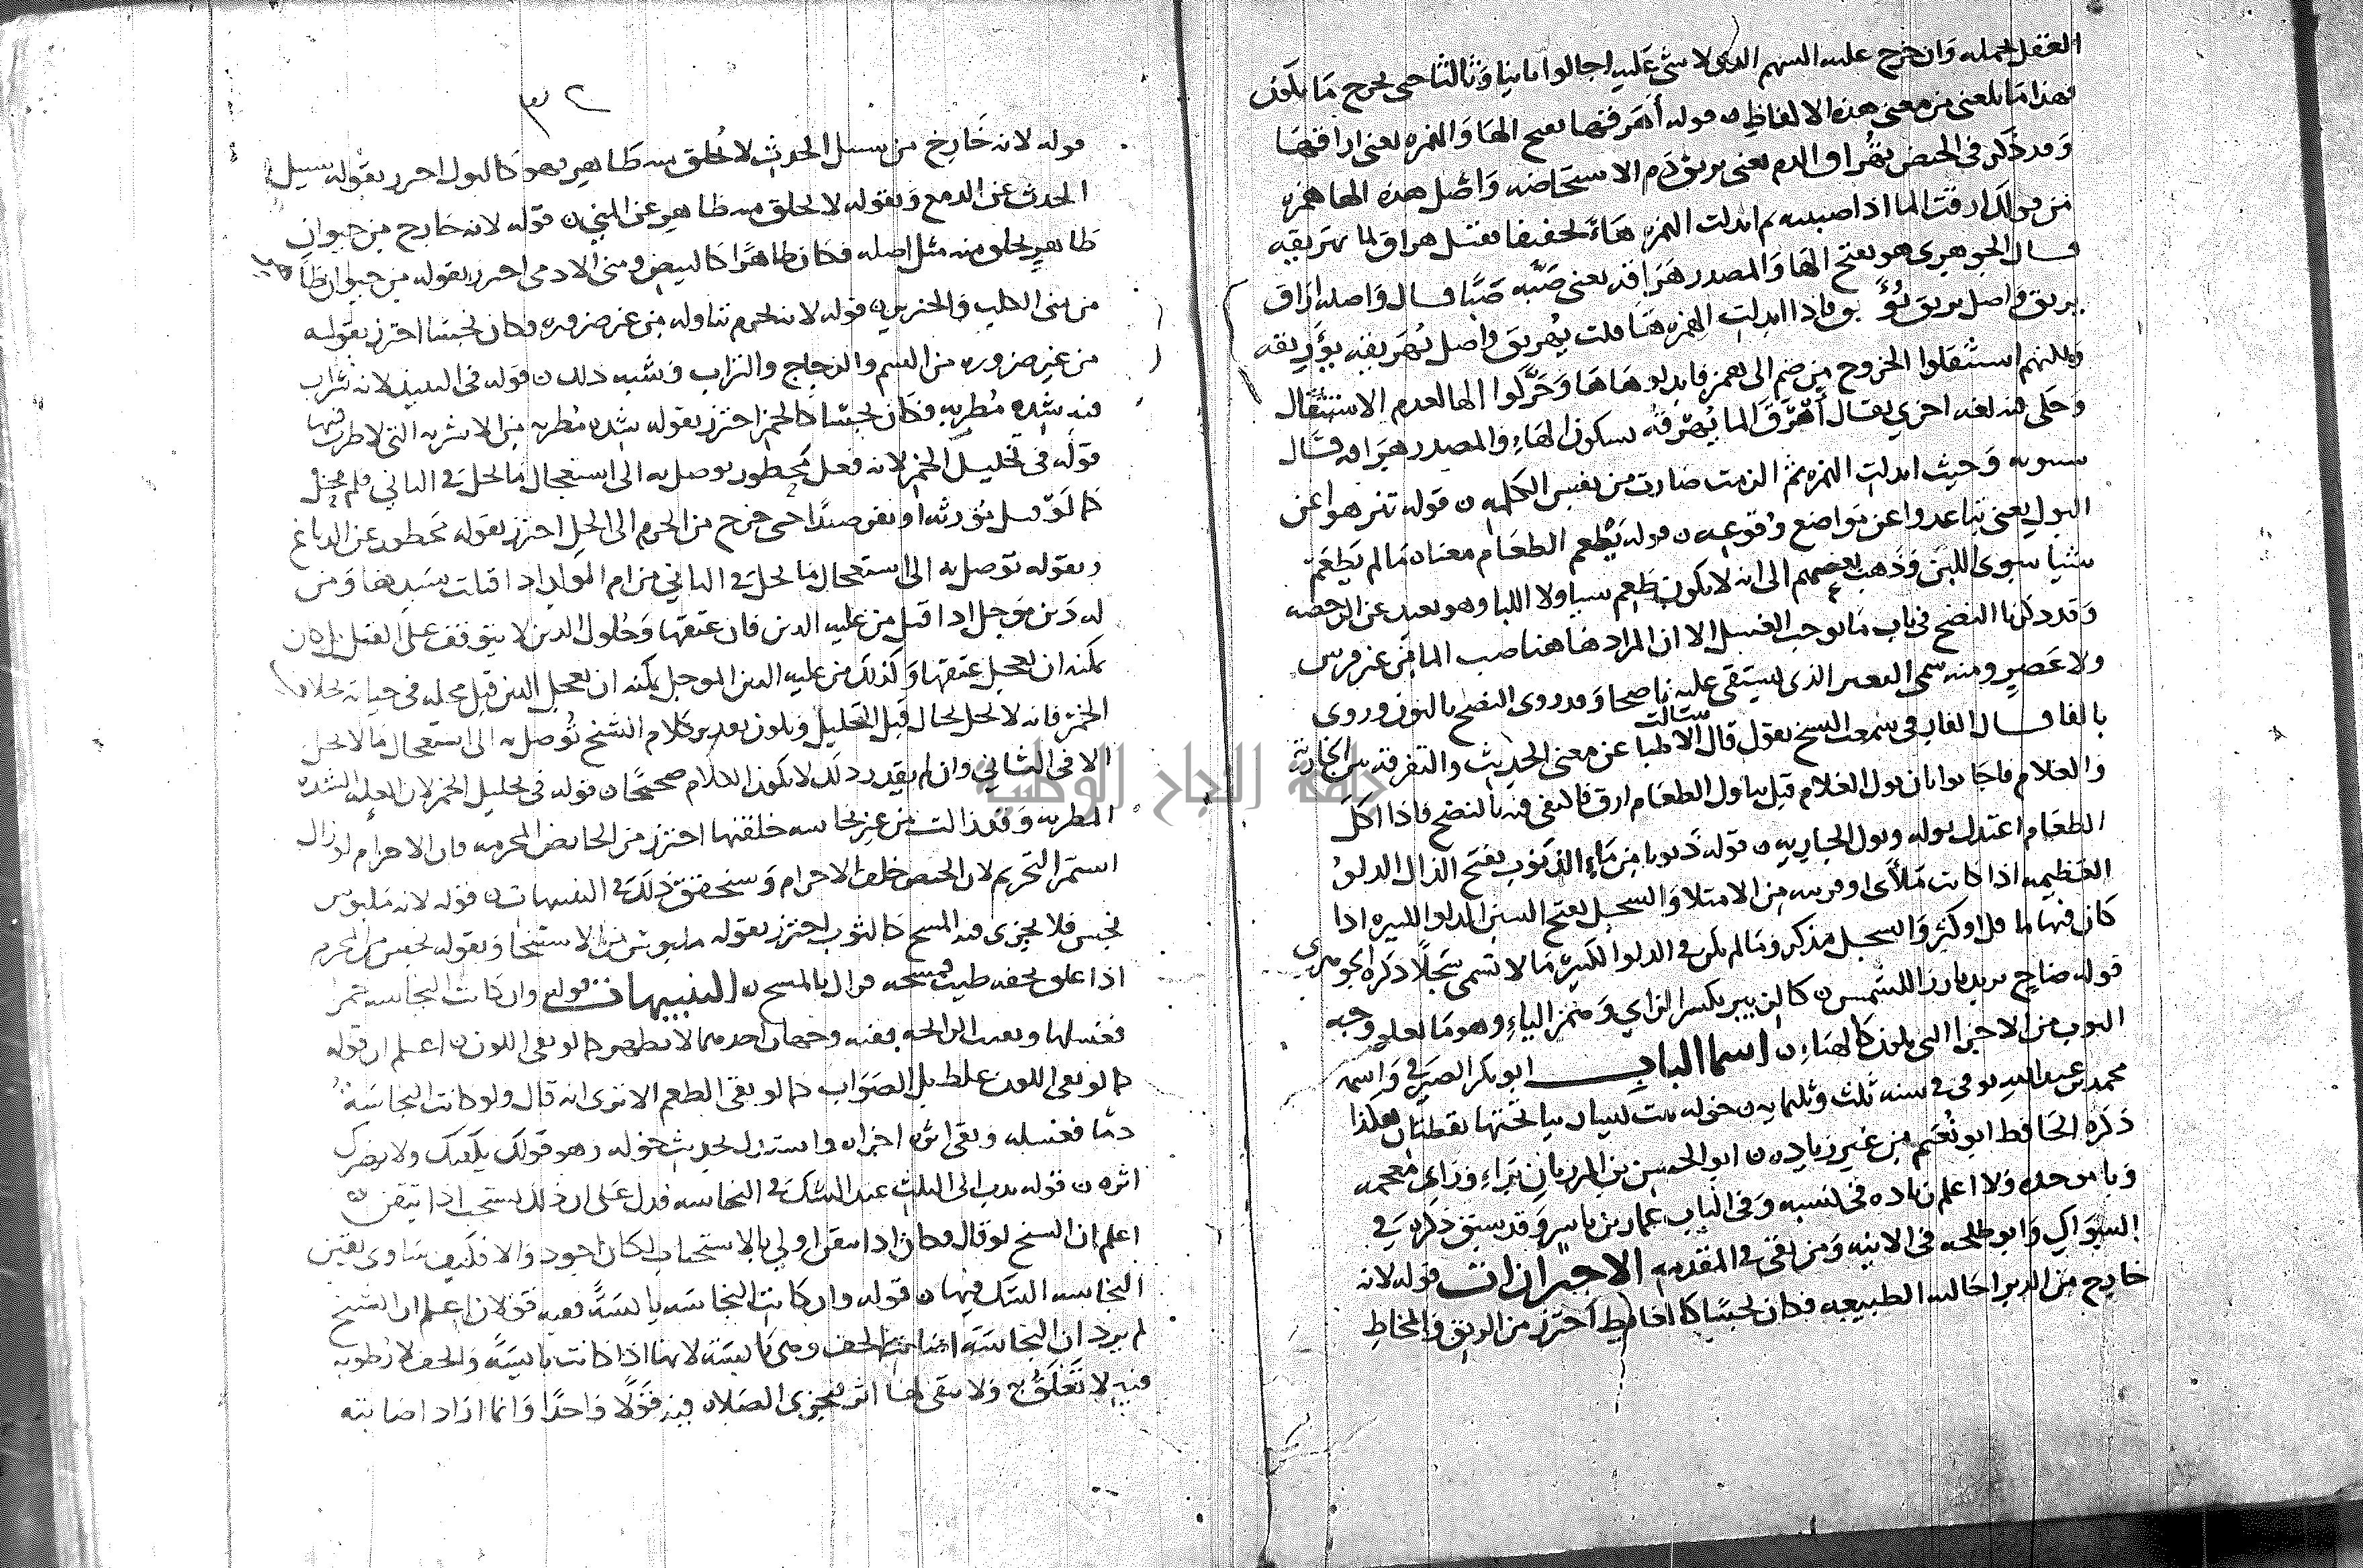 العقل بجمله وان خرج عليه السهم الذي لا شي عليه اجالوا ثانيا وثالثا حتى يخرج ما يكون
فهذا ما بلغني من معنى هذه الالفاظ ن قوله أهرقها بفتح الها والهمزه يعني اراقها
وقد ذكر في الحيض تهراق الدم يعني يريق دم الاستحاضه واصل هذه الها همزه
من قولك ارقت الما اذا صببته ثم ابدلت الهمزه هاءً تخفيفا فقيل هراق الما يهريقه
قال الجوهري هو بفتح الها والمصدر هراقه يعني صبه صبًا قال واصله اراق
يريق واصل يريق يؤريق فاذا ابدلت الهمزه ها قلت يهريق واصل يهريقه يؤريقه
ولكنهم استثقلوا الخروج من ضم الى همز فابدلوها ها وحركوا الها لعدم الاستثقال
وحكى فيه لغه اخري يقال أهرق الما يهرقه بسكون الهاء والمصدر هراقه قال
سيبويه وحيث ابدلت الهمزه ثم الزمت صارت من نفس الكلمه ن قوله تنزهوا عن
البول يعني تباعدوا عن مواضع وقوعه ن قوله يطعم الطعام معناه ما لم يطعم
شيا سوى اللبن وذهب بعضهم الى انه لا يكون يطعم شيا ولا اللبا وهو بعيد عن الرخصه
وقد ذكرنا النضح في باب ما يوجب الغسل الا ان المراد هاهنا صب الما من غير فرس
ولا عصر ومنه سمي البعير الذي يستقى عليه ناضحا وقد روى النضح بالنون وروى
بالفا قال الفارقي سمعت الشيخ يقول سالت الاطبا عن معنى الحديث والتفرقه بين الجاريه
والغلام فاجابوا بان بول الغلام قبل تناول الطعام ارق فاكتفى فيه بالنضح فاذا اكل
الطعام اعتدل بوله وبول الجاريه ن قوله ذنوبا من ماء الذنوب بفتح الذال الدلو
العظيمه اذا كانت ملأى او قريبه من الامتلا والسجل بفتح السين الدلو الكبيره اذا
كان فيها ما قل او كثر والسجل مذكر وما لم يكن في الدلو الكبيره ما لا تسمى سجلًا ذكره الجوهري
قوله ضاح يريد بارزا للشمس ن كالزيبر بكسر الزاي وهمز الياء وهو ما يعلو وجه
الثوب من الاجزا التي تكون كالهباء ن اسما الباب ابو بكر الصيرفي واسمه
محمد بن عبد الله توفي في سنه ثلث وثلثمايه ن خوله بنت يسار بيا تحتها نقطتان هكذا
ذكره الحافظ ابو نعيم من غير زياده ن ابو الحسن بن المرزبان براء وزاي معجمه
وبا موحده ولا اعلم زياده في نسبه وفي الباب عمار بن ياسر وقد سبق ذكره في
السواك وابو طلحه في الانيه ومن بقي في المقدمه الاحترازات قوله لانه
خارج من الدبر احالته الطبيعه فكان نجسًا كالغايط احترز من الريق والمخاط
٣٢
قوله لانه خارج من سبيل الحدث لا يخلق منه طاهر فهو كالبول احترز بقوله سبيل
الحدث عن الدمع وبقوله لا يخلق منه طاهر عن المني ن قوله لانه خارج من حيوان
طاهر يخلق منه مثل اصله فكان طاهرًا كالبيض ومني الادمي احترز بقوله من حيوان طاهر
من مني الكلب والخنزير ن قوله لانه يحرم تناوله من غير ضروره فكان نجسا احترز بقوله
من غير ضروره من السم والزجاج والتراب وشبه ذلك ن قوله في النبيذ لانه شراب
فيه شده مطربه فكان نجسًا كالخمر احترز بقوله شده مطربه من الاشربه التي لا طرب فيها
قوله في تخليل الخمر لانه فعل محظور توصل به الى استعجال ما يحل في الثاني فلم يحل
كما لو قتل مورثه او نفر صيدًا حتى خرج من الحرم الى الحل احترز بقوله محظور عن الدباغ
وبقوله توصل به الى استعجال ما يحل في الثاني من ام الولد اذا قتلت سيدها ومن
له دين موجل اذا قتل من عليه الدين فان عتقها وحلول الدين لا يتوقف على القتل
يمكنه ان يعجل عتقها وكذلك من عليه الدين الموجل يمكنه ان يعجل الدين قبل محله في حياته بخلاف
الخمر فانه لا يحل بحال قبل التخليل ويكون تقدير كلام الشيخ توصل به الى استعجال ما لا يحل
الا في الثاني وان لم يقدر ذلك لا يكون الكلام صحيحًا ن قوله في تخليل الخمر لان العله الشده
المطربه وقد زالت من غير نجاسه خلفتها احترز من الحايض المحرمه فان الاحرام لو زال
استمر التحريم لان الحيض خلف الاحرام وسنحقق ذلك في التنبيهات ن قوله لانه ملبوس
نجس فلا يجزى فيه المسح كالثوب احترز بقوله ملبوس من الاستنجا وبقوله نجس من المحرم
اذا علق بخفه طيب فمسحه فزال بالمسح ن التنبيهات قوله وان كانت النجاسه خمرا
فغسلها وبقيت الرائحه ففيه وجهان احدهما لا يطهر كما لو بقى اللون ن اعلم ان قوله
كما لو بقى اللون غلط بل الصواب كما لو بقى الطعم الا ترى انه قال ولو كانت النجاسه
دمًا فغسله وبقى اثره اجزاه واستدل بحديث خوله وهو قوله يكفيك ولا يضرك
اثره ن قوله ندب الى الثلث عند الشك في النجاسه فدل على ان ذلك يستحب اذا تيقن ن
اعلم ان الشيخ لو قال وكان اذا تيقن اولى بالاستحباب لكان اجود والا فكيف يساوى يقين
النجاسه الشك فيها ن قوله وان كانت النجاسه يابسة ففيه قولان اعلم ان الشيخ
لم يرد ان النجاسه اصابت الخف وهي يابسه لانها اذا كانت يابسه والخف لا رطوبه
فيه لا تعلق به ولا يبقى لها اثر فتجزى الصلاه فيه قولًا واحدًا وانما اراد اصابته